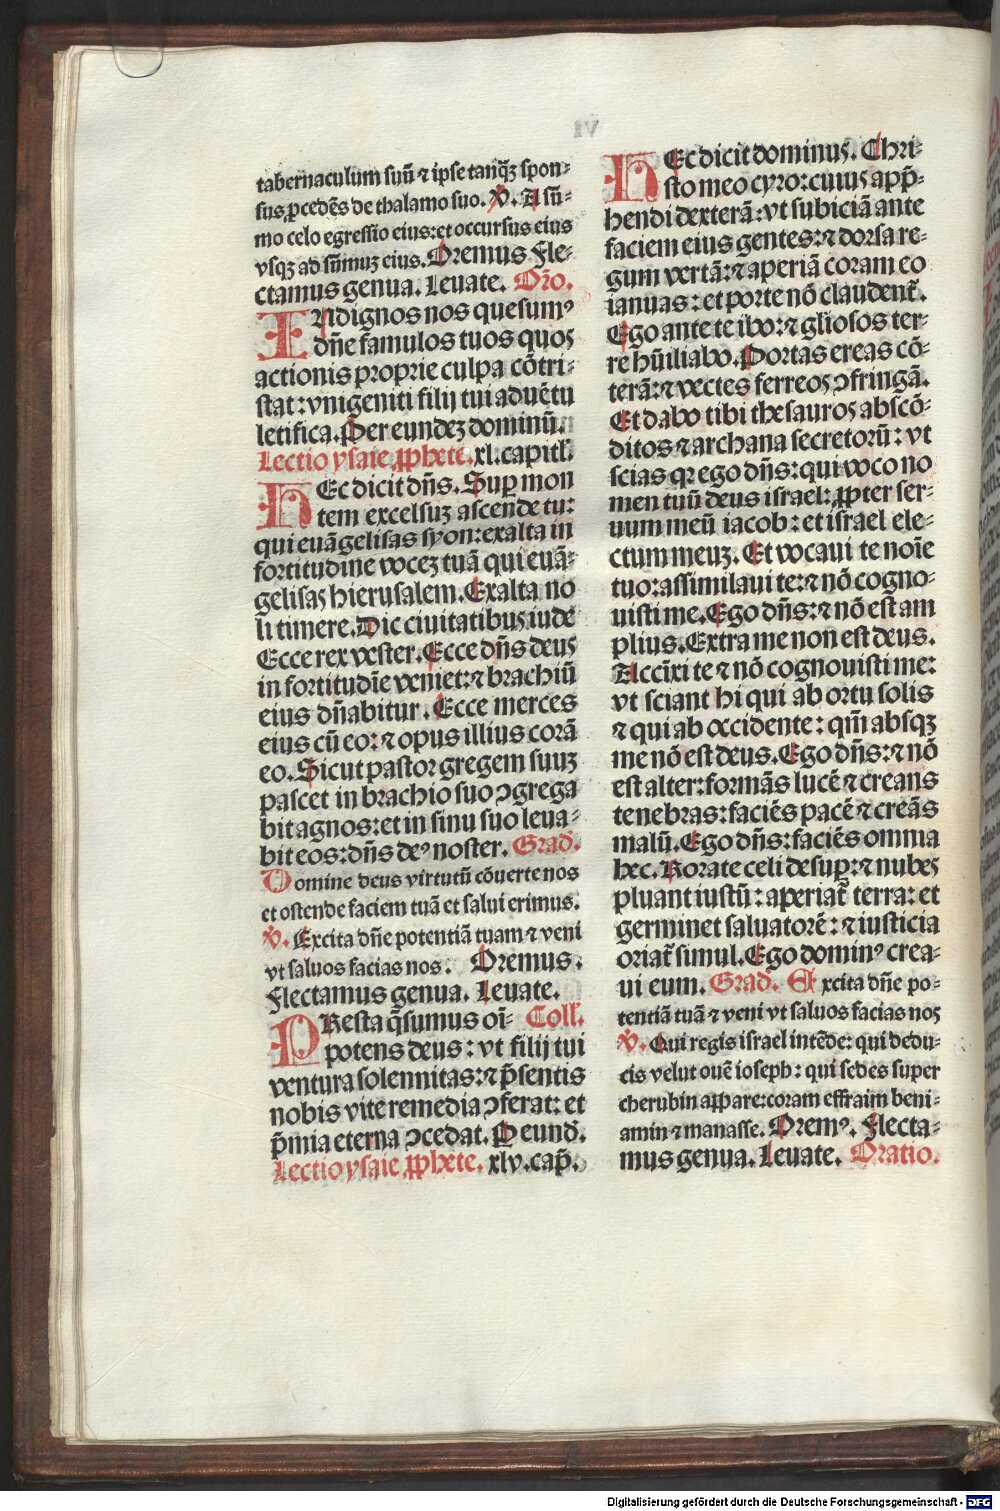 tabernaculum suū ⁊ ipse tanqꝫ spon⸗
sus ꝓcedēs de thalamo suo. ℣. A sū⸗
mo celo egressio eius: et occursus eius
vsqꝫ ad sūmuꝫ eius. Oremus Fle⸗
ctamus genua. Leuate. Oro̅.
INdignos nos quesumꝰ
dn̄e famulos tuos quos
actionis proprie culpa cōtri⸗
stat: vnigeniti filij tui aduētu
letifica. Per eundeꝫ dominū.
Lectio ysaie ꝓphete. xl. capitł.
HEc dicit dn̄s. Suꝑ mon
tem excelsuꝫ ascende tu:
qui euāgelisas syon: exalta in
fortitudine voceꝫ tuā qui euā⸗
gelisas hierusalem. Exalta no
li timere. Dic ciuitatibus iude
Ecce rex vester. Ecce dn̄s deus
in fortitudīe veniet: ⁊ brachiū
eius dn̄abitur. Ecce merces
eius cū eo: ⁊ opus illius corā
eo. Sicut pastor gregem suuꝫ
pascet in brachio suo ↄgrega
bit agnos: et in sinu suo leua⸗
bit eos: dn̄s deꝰ noster. Grad̄.
Domine deus virtutū cōuerte nos
et ostende faciem tuā et salui erimus.
℣. Excita dn̄e potentiā tuam ⁊ veni
vt saluos facias nos. Oremus.
Flectamus genua. Leuate.
PResta q̄sumus oī⸗ Coll̄.
potens deus: vt filij tui
ventura solennitas: ⁊ p̄sentis
nobis vite remedia ↄferat: et
p̄mia eterna ↄcedat. P eund̄.
Lectio ysaie ꝓphete. xlv. cap̄.
HEc dicit dominus. Chri⸗
sto meo cyro: cuius app̄⸗
hendi dexterā: vt subiciā ante
faciem eius gentes: ⁊ dorsa re⸗
gum vertā: ⁊ aperiā coram eo
ianuas: et porte nō claudent̄.
Ego ante te ibo: ⁊ gliosos ter⸗
re hūiliabo. Portas ereas cō⸗
terā: ⁊ vectes ferreos ↄfringā.
Et dabo tibi thesauros abscō⸗
ditos ⁊ archana secretorū: vt
scias qꝛ ego dn̄s: qui voco no
men tuū deus israel: ꝓpter ser⸗
uum meū iacob: et israel ele⸗
ctum meuꝫ. Et vocaui te noīe
tuo: assimilaui te: ⁊ nō cogno⸗
uisti me. Ego dn̄s: ⁊ nō est am
plius. Extra me non est deus.
Accīxi te ⁊ nō cognouisti me:
vt sciant hi qui ab ortu solis
⁊ qui ab occidente: qm̄ absqꝫ
me nō est deus. Ego dn̄s: ⁊ nō
est alter: formās lucē ⁊ creans
tenebras: faciēs pacē ⁊ creās
malū. Ego dn̄s: faciēs omnia
hec. Rorate celi desuꝑ: ⁊ nubes
pluant iustū: aperiat̄ terra: et
germinet saluatorē: ⁊ iusticia
oriat̄ simul. Ego dominꝰ crea⸗
ui eum. Grad̄. Excita dn̄e po⸗
tentiā tuā ⁊ veni vt saluos facias nos
℣. Qui regis israel intēde: qui dedu⸗
cis velut ouē ioseph: qui sedes super
cherubin appare: coram effraim beni⸗
amin ⁊ manasse. Oremꝰ. Flecta⸗
mus genua. Leuate. Oratio.
Digitalisierung gefördert durch die Deutsche Forschungsgemeinschaft - DFG